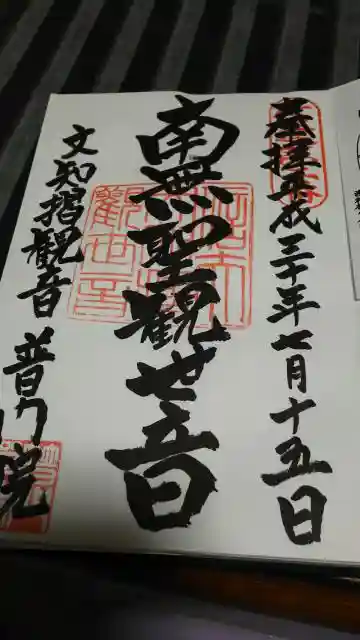 奉拝平成三十年七月十五日
南無聖観世音
文知摺観音 普門院